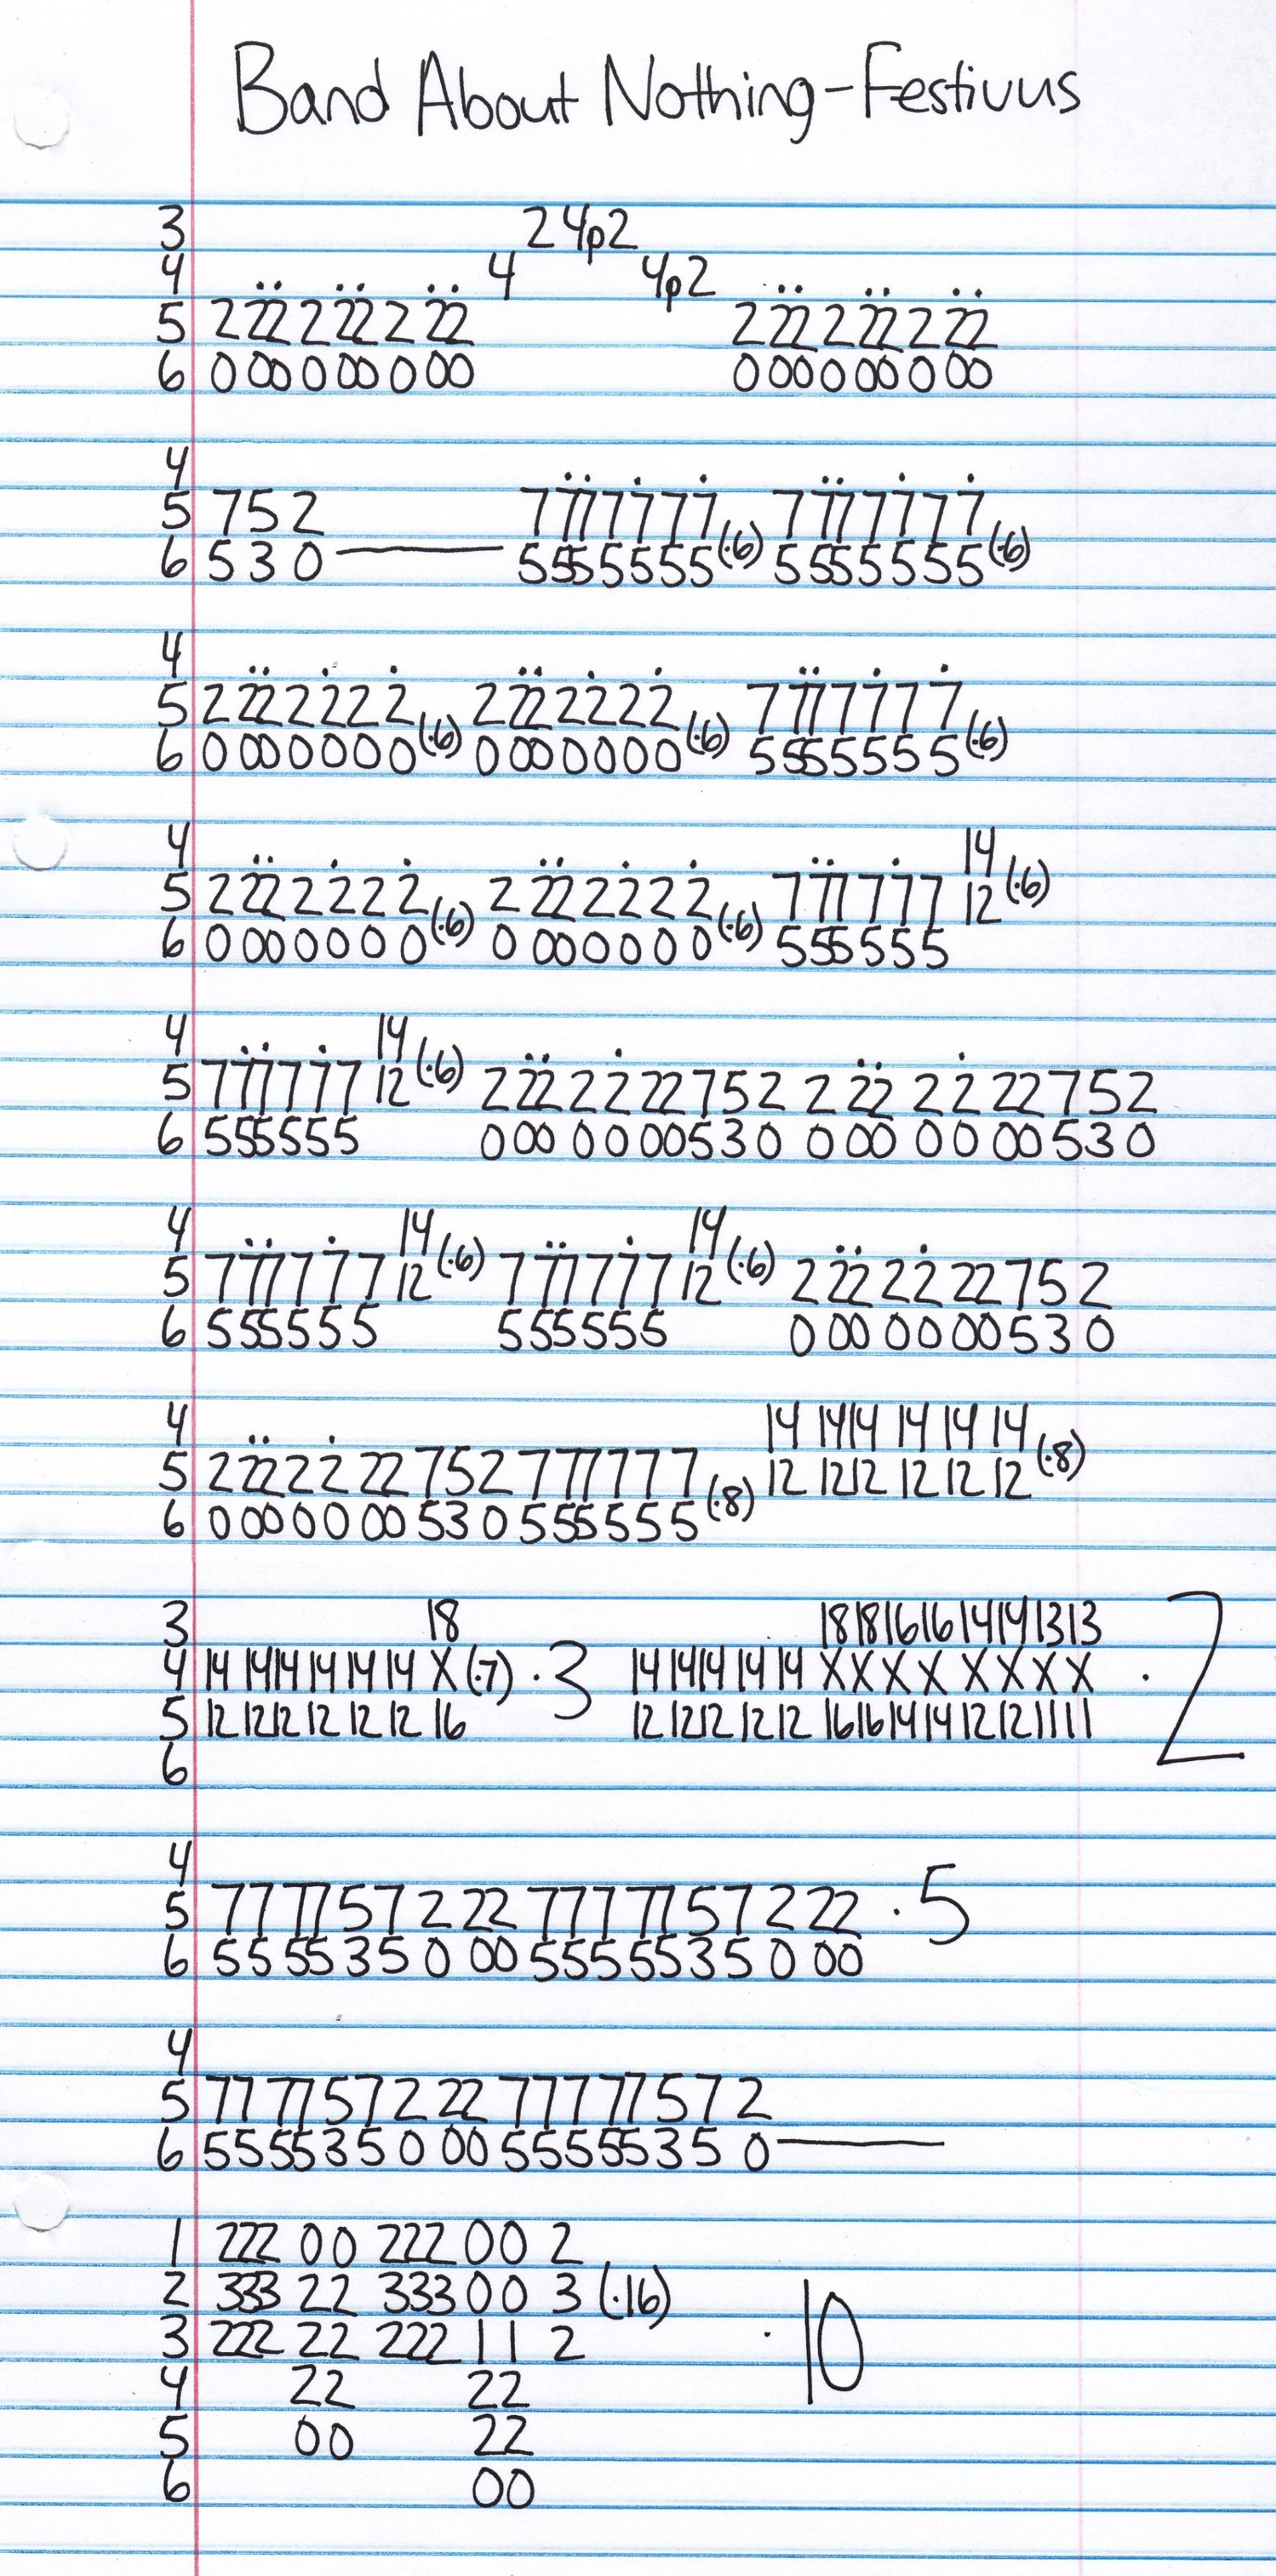 Band About Nothing-Festivus
3 2 4p2
4 4 4p2
5 2 22 2 22 2 22 2 22 2 22 2 22
6 0 00 0 00 0 00 0 00 0 00 0 00
4
5 7 5 2 7 77 7 7 7 7 7 77 7 7 7 7
6 5 3 0 5 55 5 5 5 5 (·6) 5 55 5 5 5 5 (·6)
4
5 2 22 2 2 2 2 2 22 2 2 2 2 7 77 7 7 7 7
6 0 00 0 0 0 0 (·6) 0 00 0 0 0 0 (·6) 5 55 5 5 5 5 (·6)
4 14
5 2 22 2 2 2 2 2 22 2 2 2 2 7 77 7 7 7 12 (·6)
6 0 00 0 0 0 0 (·6) 0 00 0 0 0 0 (·6) 5 55 5 5 5
4 14
5 7 77 7 7 7 12 (·6) 2 22 2 2 22 7 5 2 2 22 2 2 22 7 5 2
6 5 55 5 5 5 0 00 0 0 00 5 3 0 0 00 0 0 00 5 3 0
4 14 14
5 7 77 7 7 7 12 (·6) 7 77 7 7 7 12 (·6) 2 22 2 2 22 7 5 2
6 5 55 5 5 5 5 55 5 5 5 0 00 0 0 00 5 3 0
4 14 14 14 14 14 14
5 2 22 2 2 22 7 5 2 7 77 7 7 7 12 12 12 12 12 12 (·8)
6 0 00 0 0 00 5 3 0 5 55 5 5 5 (·8)
3 18 18 18 16 16 14 14 13 13
4 14 14 14 14 14 14 X (·7) ·3 14 14 14 14 14 X X X X X X X X ·2
5 12 12 12 12 12 12 16 12 12 12 12 12 16 16 14 14 12 12 11 11
6
4
5 7 7 77 5 7 2 22 7 7 7 77 5 7 2 22 ·5
6 5 5 55 3 5 0 00 5 5 5 55 3 5 0 00
4
5 7 7 77 5 7 2 22 7 7 7 77 5 7 2
6 5 5 55 3 5 0 00 5 5 5 55 3 5 0
1 222 0 0 222 0 0 2
2 333 2 2 333 0 0 3 (·16)
3 222 2 2 222 1 1 2 ·10
4 2 2 2 2
5 0 0 2 2
6 0 0